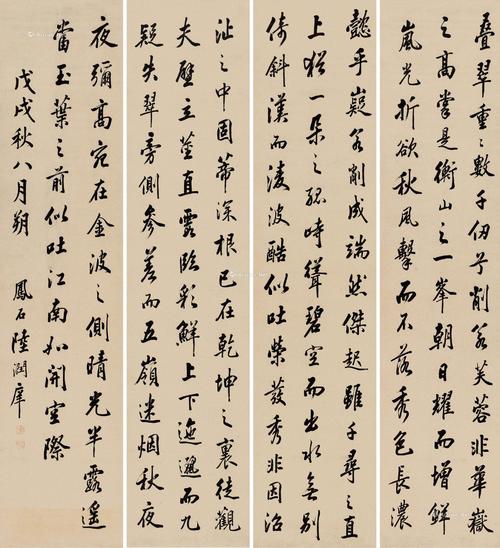 叠翠重〻數千仞兮削容芙蓉非華嶽
之高掌是衡山之一峯朝日耀而增鮮
嵐光折欲秋風擊而不落秀色長濃
懿乎嶷容削成端然傑起雖千尋之直
上猶一朵之孤峙聳碧空而出水無別
倚斜漢而淩波酷似吐榮發秀非因沼
沚之中固蒂深根已在乾坤之裏徒觀
夫壁立莖直露臨彩鮮上下迤邐而九
疑失翠旁側參差而五嶺迷烟秋夜
夜彌高宛在金波之側晴光半露遥
當玉葉之前似吐江南如開空際
戊戌秋八月朔 鳳石陸潤庠